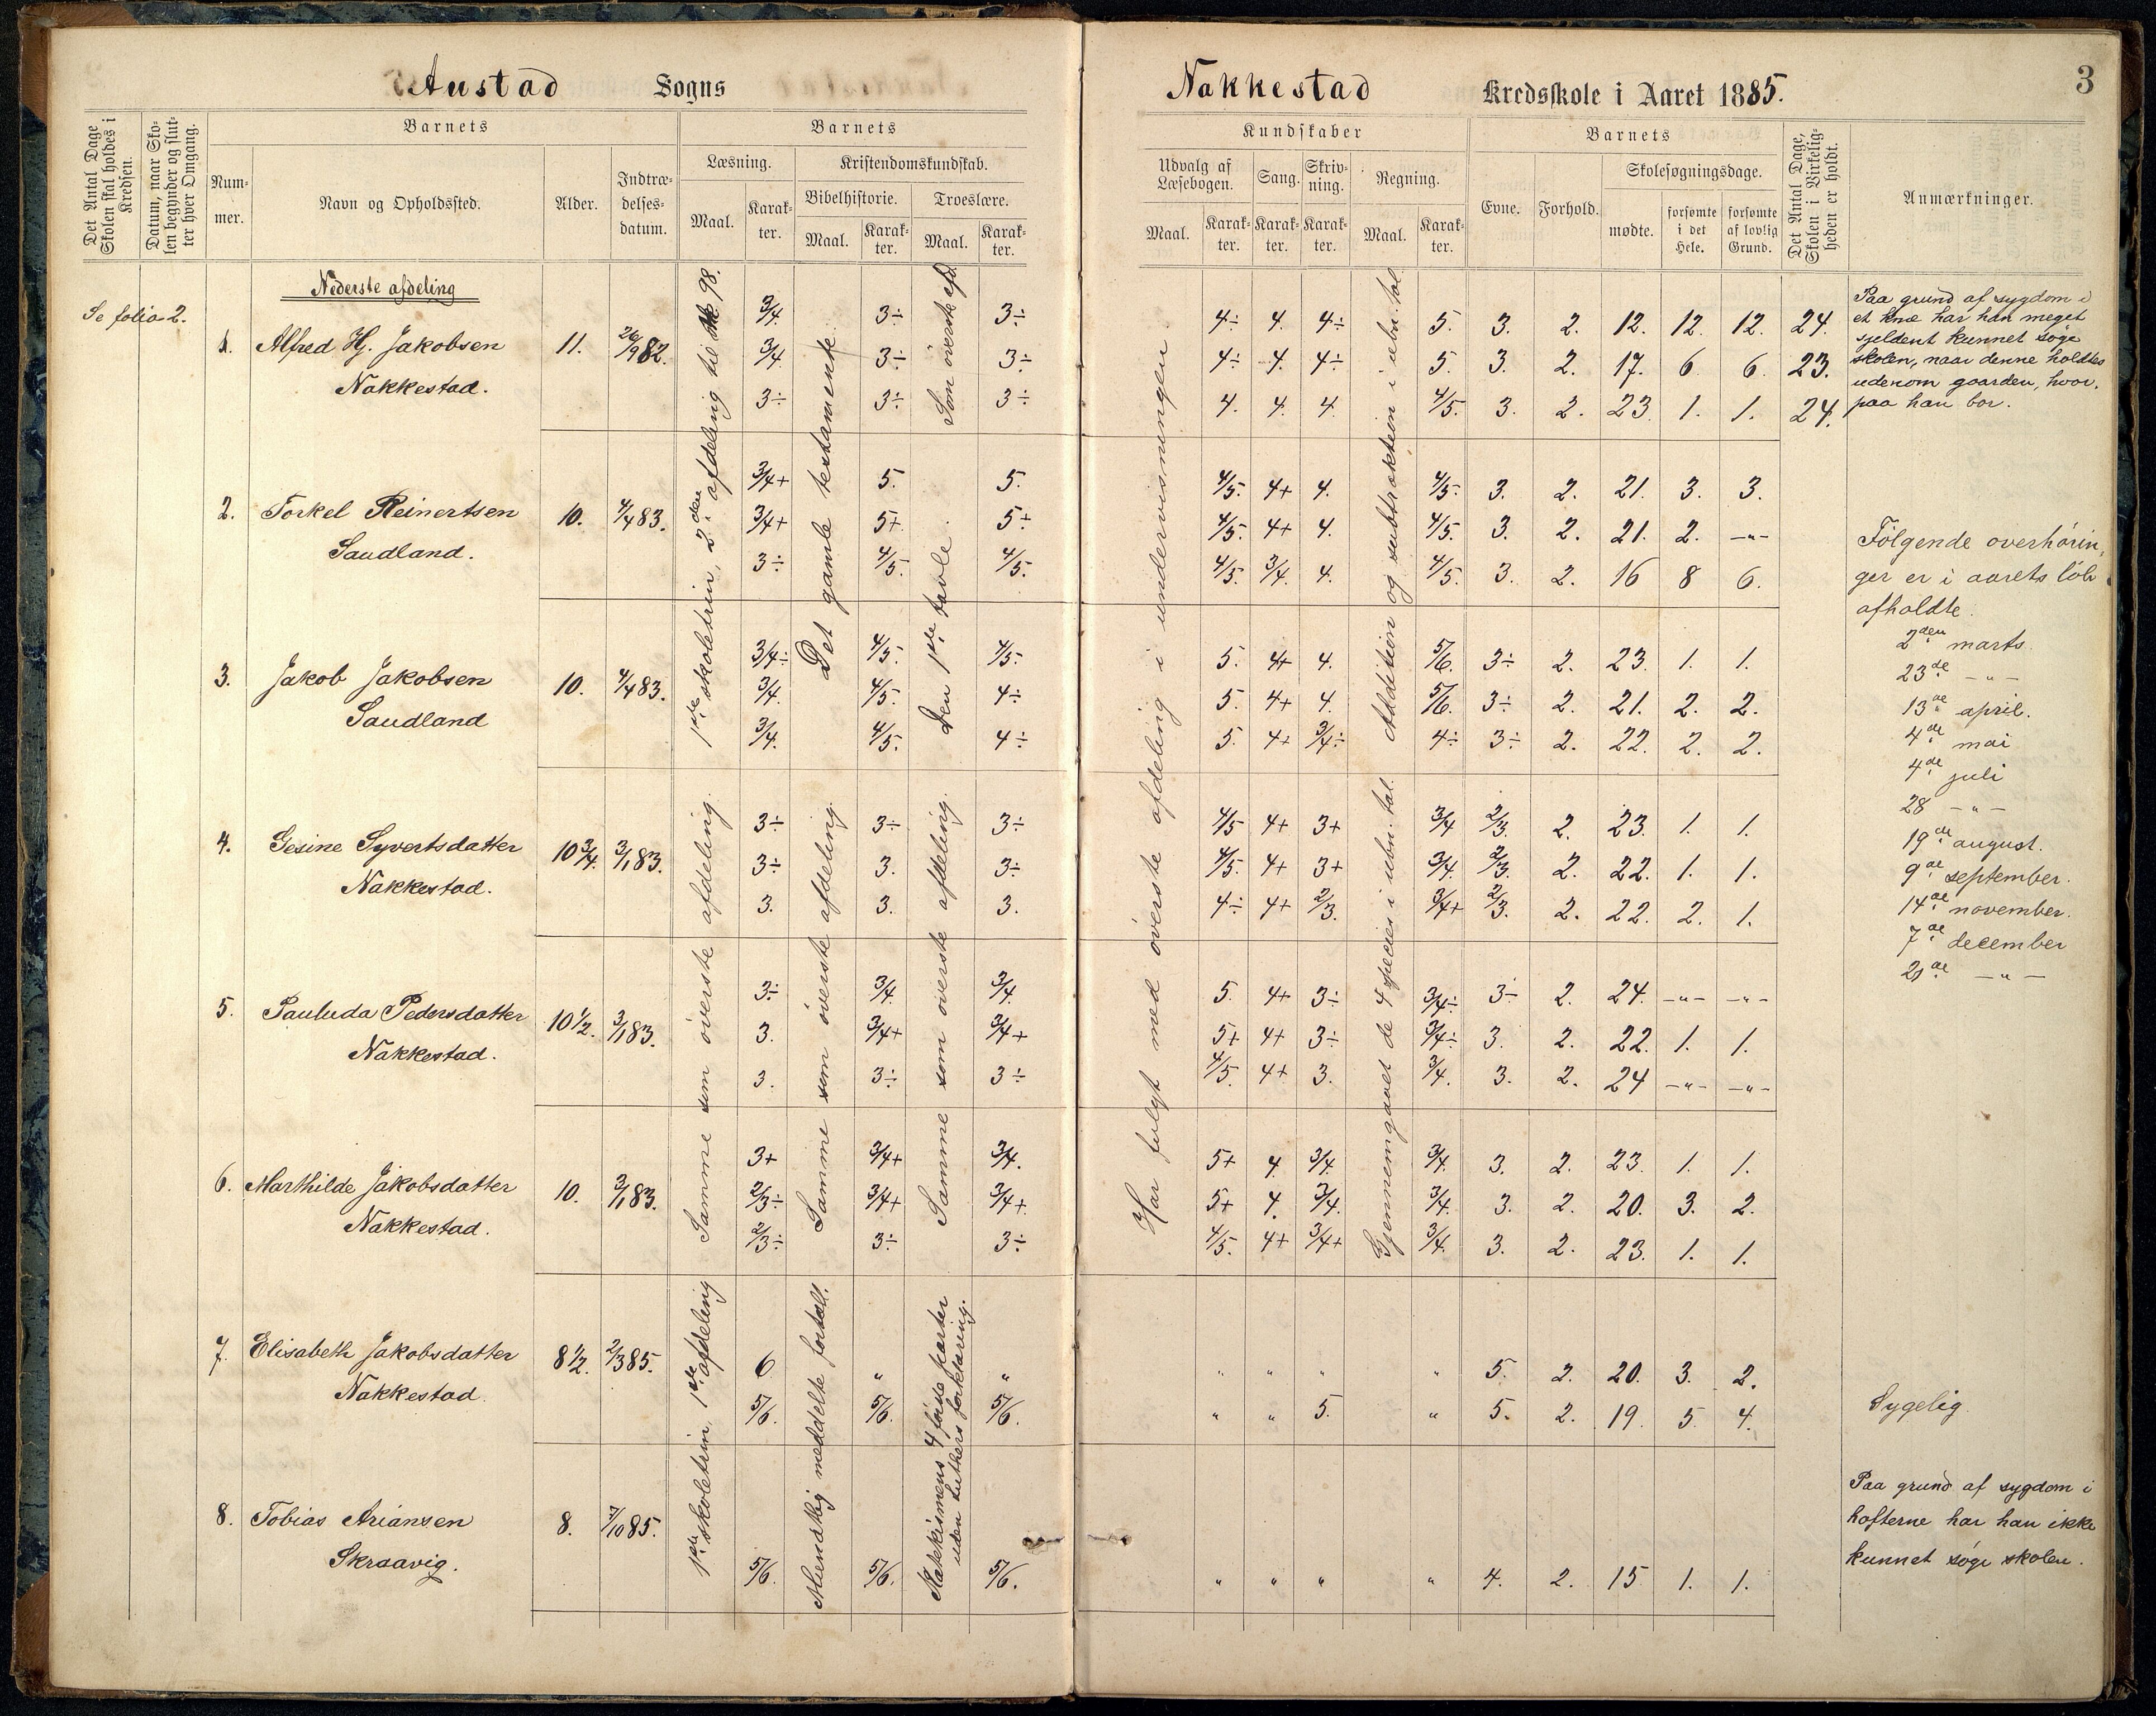 Austad Sogns Nakkestad Kredsskole i Aaret 1885. 3
Det Antal Dage Skolen skal holdes i Kredsen.
Datum, naar Skolen begynder og slutter hver Omgang.
Barnets
Nummer.
Navn og Opholdssted.
Alder.
Indtrædelsesdatum.
Barnets
Læsning.
Maal.
Karakter.
Kristendomskundskab.
Bibelhistorie.
Maal.
Karakter.
Troeslære.
Maal.
Karakter.
Kundskaber
Udvalg af Læsebogen.
Maal.
Karakter.
Sang.
Karakter.
Skrivning.
Karakter.
Regning.
Maal.
Karakter.
Barnets
Evne.
Forhold.
Skolesøgningsdage.
mødte.
forsømte i det Hele.
forsømte af lovlig Grund.
Det Antal Dage, Skolen i Virkeligheden er holdt.
Anmærkninger.
Se folio 2.
Nederste afdeling
1. Alfred Hj. Jakobsen 11. 26/9 82.
Nakkestad.
3/4. 3÷ 3÷ 4÷ 4. 4÷ 5. 3. 2. 12. 12. 12. 24.
3/4. 3÷ 3÷ 4÷ 4. 4÷ 5. 3. 2. 17. 6. 6. 23.
3÷ 3÷ 3÷ 4. 4. 4. 4/5. 3. 2. 23 1. 1. 24.
2. Torkel Reinertsen 10. 4/4 83.
Saudland.
3/4+ 5. 5. 4/5. 4+ 4. 4/5. 3. 2. 21. 3. 3.
3/4+ 5+ 5+ 4/5. 4+ 4. 4/5. 3. 2. 21. 2. -"-
3÷ 4/5. 4/5. 4/5. 3/4. 4. 4/5. 3. 2. 16 8 6.
3. Jakob Jakobsen 10. 4/4 83.
Saudland
3/4÷ 4/5. 4/5. 5. 4+ 4. 5/6. 3÷ 2. 23. 1. 1.
3/4. 4/5. 4÷ 5. 4+ 4. 5/6. 3÷ 2. 21. 2. 2.
3/4. 4/5. 4÷ 5. 4+ 3/4÷ 4÷ 3÷ 2. 22. 2. 2.
4. Gesine Syvertsdatter 10 3/4. 3/1 83.
Nakkestad.
3÷ 3÷ 3÷ 4/5 4+ 3+ 3/4 2/3. 2. 23. 1. 1.
3÷ 3. 3÷ 4/5. 4+ 3+ 3/4. 2/3. 2. 22. 1. 1.
3. 3. 3. 4÷ 4+ 2/3. 3/4+ 2/3. 2. 22. 2. 1.
5. Pauluda Pedersdatter 10 1/2. 3/1 83.
Nakkestad.
3÷ 3/4. 3/4. 5. 4+ 3÷ 3/4÷ 3÷ 2. 24. -"- -"-
3. 3/4+ 3/4+ 5+ 4+ 3÷ 3/4÷ 3. 2. 22. 1. 1.
3. 3÷ 3÷ 4/5. 4+ 3. 3/4. 3. 2. 24 -"- -"-
6. Marthilde Jakobsdatter 10. 3/1 83.
Nakkestad.
3+ 3/4+ 3/4. 5+ 4 3/4. 3/4. 3. 2. 23. 1. 1.
2/3÷ 3/4+ 3/4+ 5+ 4. 3/4. 3/4. 3. 2. 20. 3. 2.
2/3÷ 3÷ 3÷ 4/5. 4+ 3/4+ 3/4. 3. 2. 23. 1. 1.
7. Elisabeth Jakobsdatter 8 1/2. 2/3 85.
Nakkestad.
6 " " " " " " 5. 2. 20. 3. 2.
5/6. 5/6. 5/6. " " 5. " 5. 2. 19. 5 4.
8. Tobias Ariansen 8. 7/10 85.
Skraavig.
5/6. 5/6. 5/6. " " " " 4. 2. 15 1. 1.
1ste skoletrin, 2den afdeling til 98.
Samme som øverste afdeling.
1ste skoletrin 1ste afdeling
Det gamle testamente.
Samme som øverste afdeling.
Mundtlig meddelte fortæll.
Den 1ste tavle. Som øverste afd.
Samme som øverste afdeling.
Katekismens 4 første parter
uden Luthers forklaring.
Har fulgt med øverste afdeling i undervisningen.
Addition og subtraktion i ubn. tal.
Gjennemgaaet de 4 species i ubn. tal.
Paa grund af sygdom i
et knæ har han meget
sjeldent kunnet søge
skolen, naar denne holdtes
udenom gaarden, hvor-
paa han bor.
Følgende overhørin-
ger er i aarets løb
afholdte:
2den marts.
23de -"-
13de april.
4de mai
4de juli
28 -"-
19de august.
9de september.
14de november.
7de december
21de -"-
Sygelig.
Paa grund af sygdom i
hofterne har han ikke
kunnet søge skolen.